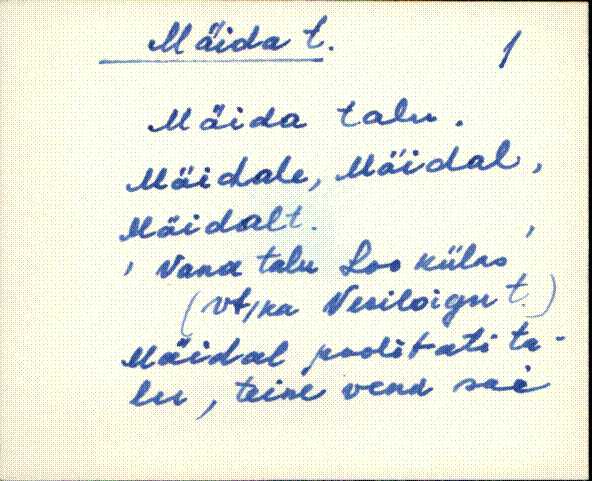 Mäida t.
1
Mäida talu.
Mäidale, Mäidal,
Mäidalt.
' Vana talu Loo külas '
(vt/ka Vesiloigu t.)
Mäidal poolitati ta-
lu, teine vend sai